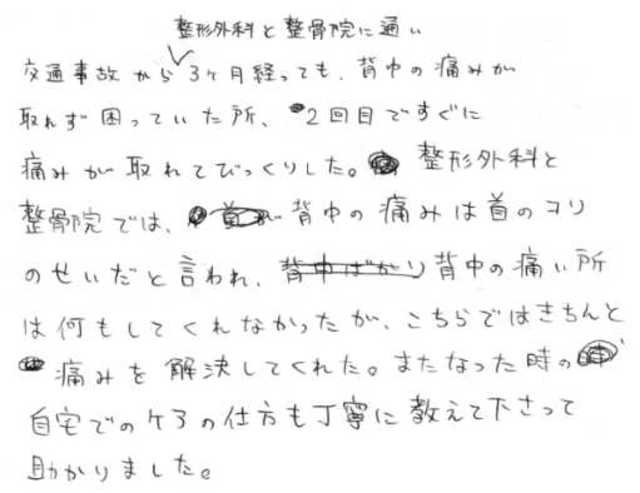 整形外科と整骨院に通い
交通事故から3ヶ月経っても、背中の痛みが
取れず困っていた所、2回目ですぐに
痛みが取れてびっくりした。整形外科と
整骨院では、背中の痛みは首のコリ
のせいだと言われ、背中ばかり背中の痛い所
は何もしてくれなかったが、こちらではきちんと
痛みを解決してくれた。またなった時の
自宅でのケアの仕方も丁寧に教えて下さって
助かりました。